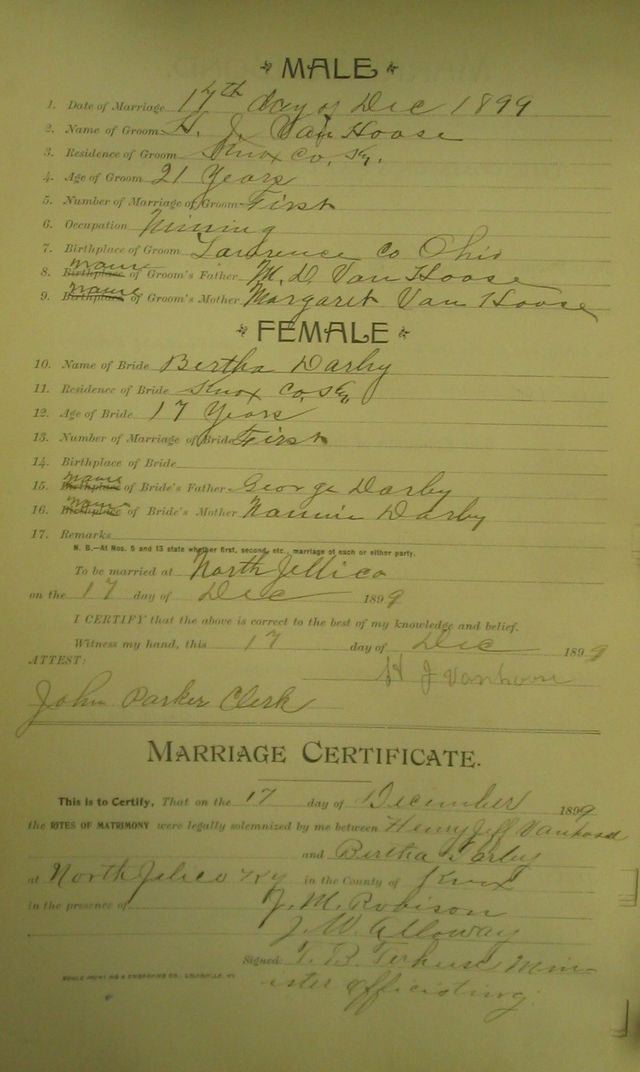 MALE
1. Date of Marriage 17th day of Dec 1899
2. Name of Groom H. J. Van Hoose
3. Residence of Groom Knox Co, Ky.
4. Age of Groom 21 Years
5. Number of Marriage of Groom First
6. Occupation Mining
7. Birthplace of Groom Lawrence Co Ohio
name
8. Birthplace of Groom's Father M. D. Van Hoose
name
9. Birthplace of Groom's Mother Margaret Van Hoose
FEMALE
10. Name of Bride Bertha Darby
11. Residence of Bride Knox Co, Ky,
12. Age of Bride 17 Years
13. Number of Marriage of Bride First
14. Birthplace of Bride
name
15. Birthplace of Bride's Father George Darby
name
16. Birthplace of Bride's Mother Nannie Darby
17. Remarks
N. B.—At Nos. 5 and 13 state whether first, second, etc., marriage of each or either party.
To be married at North Jellico
on the 17 day of Dec 1899
I CERTIFY that the above is correct to the best of my knowledge and belief.
Witness my hand, this 17 day of Dec 1899
ATTEST:
H J Vanhoose
John Parker Clerk
MARRIAGE CERTIFICATE.
This is to Certify, That on the 17 day of December 1899
the RITES OF MATRIMONY were legally solemnized by me between Henry Jeff Vanhoose
and Bertha Darby
at North Jelico Ky in the County of Knox
in the presence of J. M. Robison
J. W. Alloway
Signed: T. B. Terhune Min-
ister officiating.